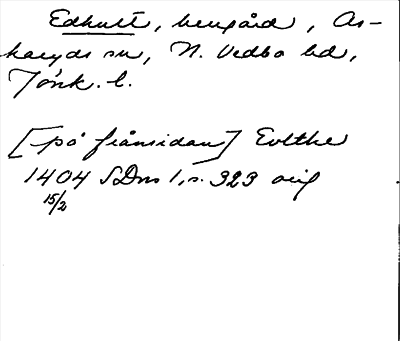 Edhult, herrgård, As-
karyds sn, N. Vedbo hd,
Jönk. l.
[på frånsidan] Evlthe
1404 SDns 1, s. 323 orig
15/2